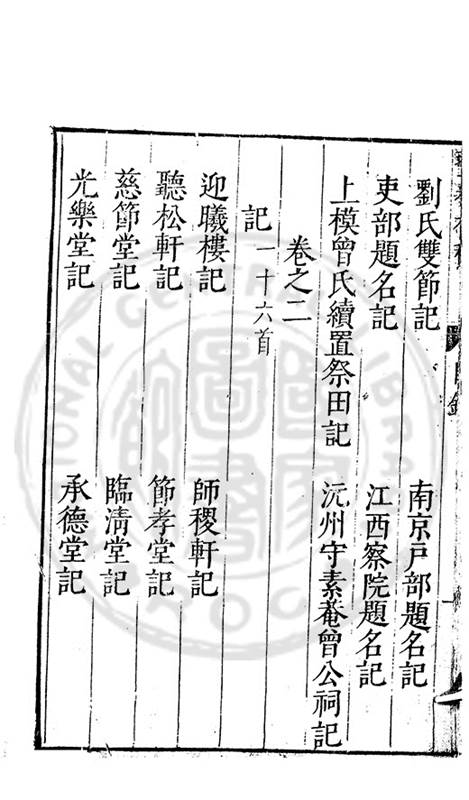 劉氏雙節記　南京戸部題名記
吏部題名記　江西察院題名記
上模曾氏續置祭田記　沅州守素菴曾公祠記
卷之二
記一十六首
迎曦樓記　師稷軒記
聽松軒記　節孝堂記
慈節堂記　臨清堂記
光樂堂記　承德堂記